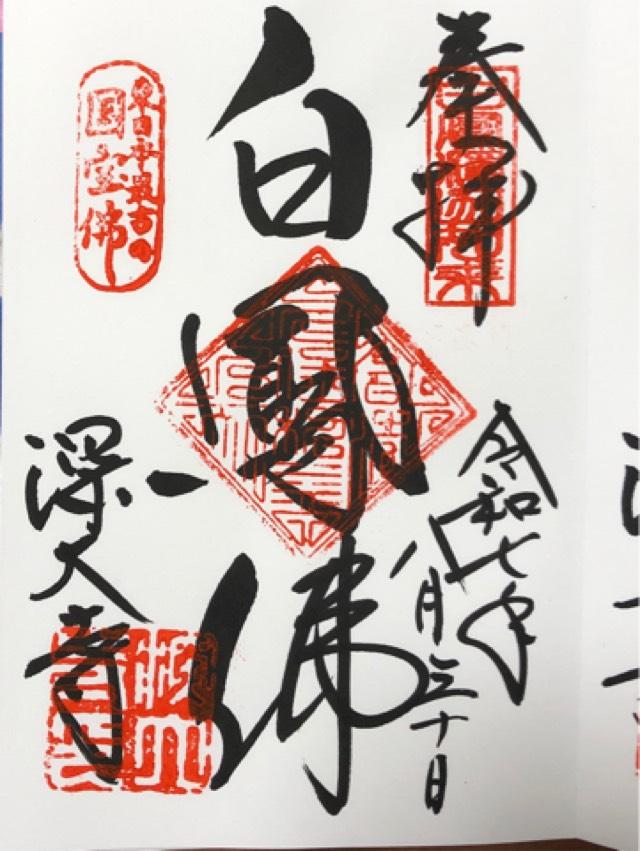 奉拝
令和七年
八月三十日
白鳳佛
東日本最古の
国宝佛
深大寺